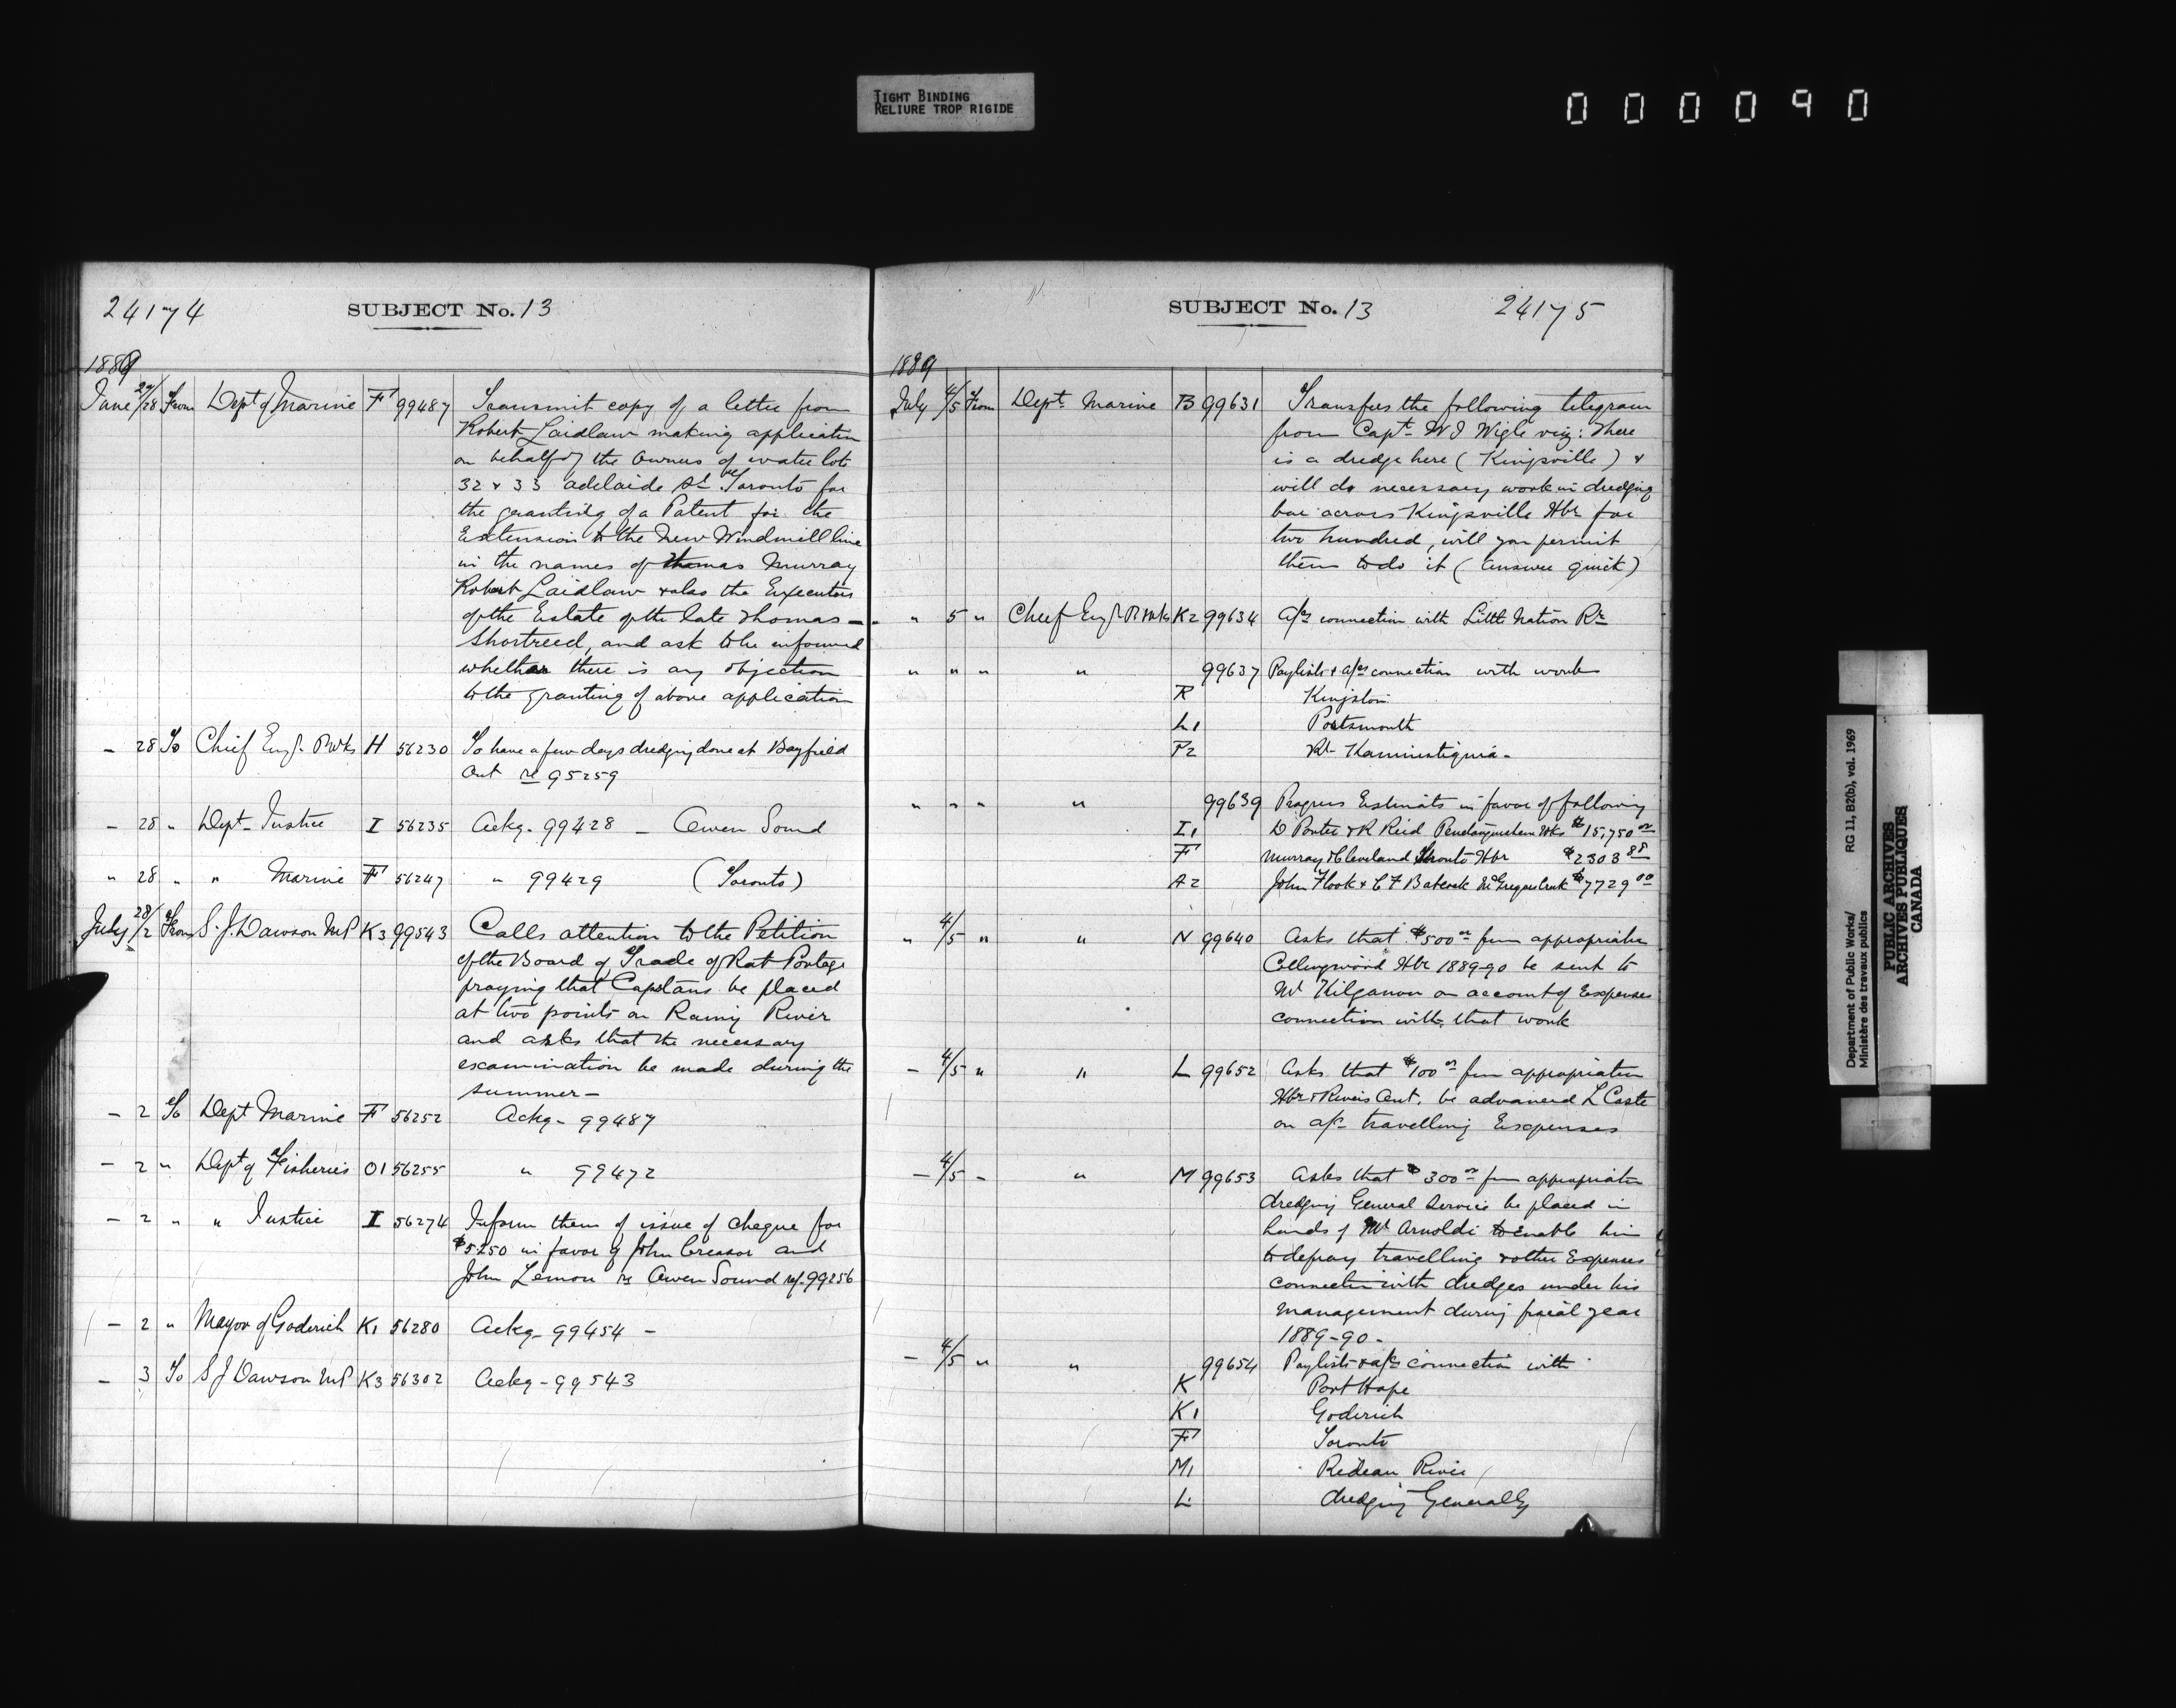 TIGHT BINDING
RELIURE TROP RIGIDE
000090
24174
SUBJECT No. 13
1889
June 27/28 From Dept of Marine F 99487 Transmit copy of a letter from
Robert Laidlaw making application
on behalf of the Owners of water lots
32 & 33 adelaide St Toronto for
the granting of a Patent for the
Extension to the New Windmill line
in the names of Thomas Murray
Robert Laidlaw & also the Executors
of the Estate of the late Thomas
Shortreed, and ask to be informed
whether there is any objection
to the granting of above application
- 28 To Chief Engr PWks H 56230 To have a few days dredging done at Bayfield
Ont re 95259
- 28 " Dept Justice I 56235 Ackg. 99428 - Owen Sound
" 28 " " Marine F 56247 " 99429 (Toronto)
July 28/2 From S. J. Dawson MP K3 99543 Calls attention to the Petition
of the Board of Trade of Rat Portage
praying that Capstans be placed
at two points on Rainy River
and asks that the necessary
examination be made during the
summer -
- 2 To Dept Marine F 56252 Ackg - 99487
- 2 " Dept of Fisheries O1 56255 " 99472
- 2 " " Justice I 56274 Inform them of issue of cheque for
$5250 in favor of John Creasor and
John Lemon re Owen Sound ref. 99256
- 2 " Mayor of Goderich K1 56280 Ackg - 99454 -
- 3 To S J Dawson MP K3 56302 Ackg - 99543
SUBJECT No. 13
24175
1889
July 4/5 From Dept Marine B 99631 Transfers the following telegram
from Capt W J Wigle viz: There
is a dredge here (Kingsville) &
will do necessary work in dredging
bar across Kingsville Hbr for
two hundred, will you permit
them to do it (answer quick)
" 5 " Chief Engr PWks K2 99634 a/cs connection with Little Nation Rr
" " " " 99637 Paylists & a/cs connection with works
R Kingston
L1 Portsmouth
P2 Rr Kaministiquia -
" " " " 99639 Progress Estimats in favor of following
I1 D Porter & R Reid Penetanguishene Wks $15,750 00
F Murray & Cleveland Toronto Hbr $2303 88
A2 John Flook & C F Babcock McGregors Creek $7729 00
" 4/5 " " N 99640 Asks that $500 00 from appropriation
Collingwood Hbr 1889-90 be sent to
Mr Kilganon on account of Expenses
connection with that work
- 4/5 " " L 99652 Asks that $100 00 from appropriation
Hbr & Rivers Ont. be advanced L Coste
on a/c travelling Expenses
- 4/5 - " M 99653 Asks that $300 00 from appropriation
dredging General Service be placed in
hands of Mr Arnoldi to Enable him
to defray travelling & other Expenses
connection with dredges under his
management during fiscal year
1889-90 -
- 4/5 " " 99654 Paylists & a/cs connection with
K Port Hope
K1 Goderich
F Toronto
M1 Rideau River
L dredging Generally
Department of Public Works/ RG 11, B2(b), vol. 1969
Ministère des travaux publics
PUBLIC ARCHIVES
ARCHIVES PUBLIQUES
CANADA